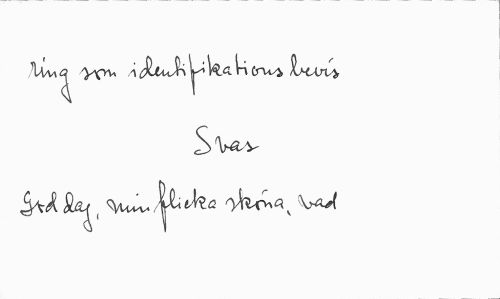 ring som identifikationsbevis
Svas
God dag, min flicka sköna, vad